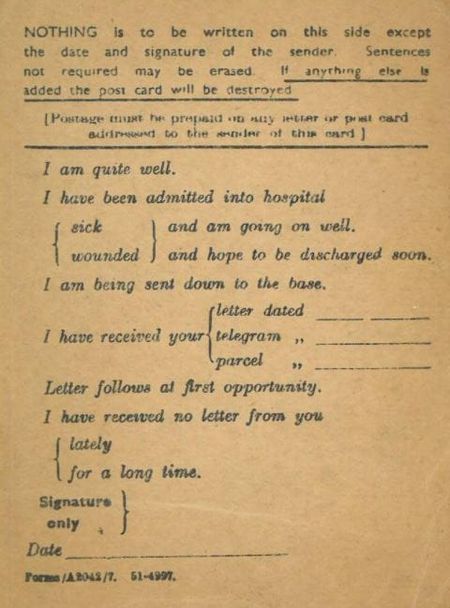 NOTHING is to be written on this side except
the date and signature of the sender. Sentences
not required may be erased. If anything else is
added the post card will be destroyed
[Postage must be prepaid on any letter or post card
addressed to the sender of this card]
I am quite well.
I have been admitted into hospital
{ sick } and am going on well.
{ wounded } and hope to be discharged soon.
I am being sent down to the base.
{ letter dated ____ ____
I have received your { telegram ,, ____
{ parcel ,, ____
Letter follows at first opportunity.
I have received no letter from you
{ lately
{ for a long time.
Signature }
only }
Date ____
Forms/A2042/7. 51-4997.